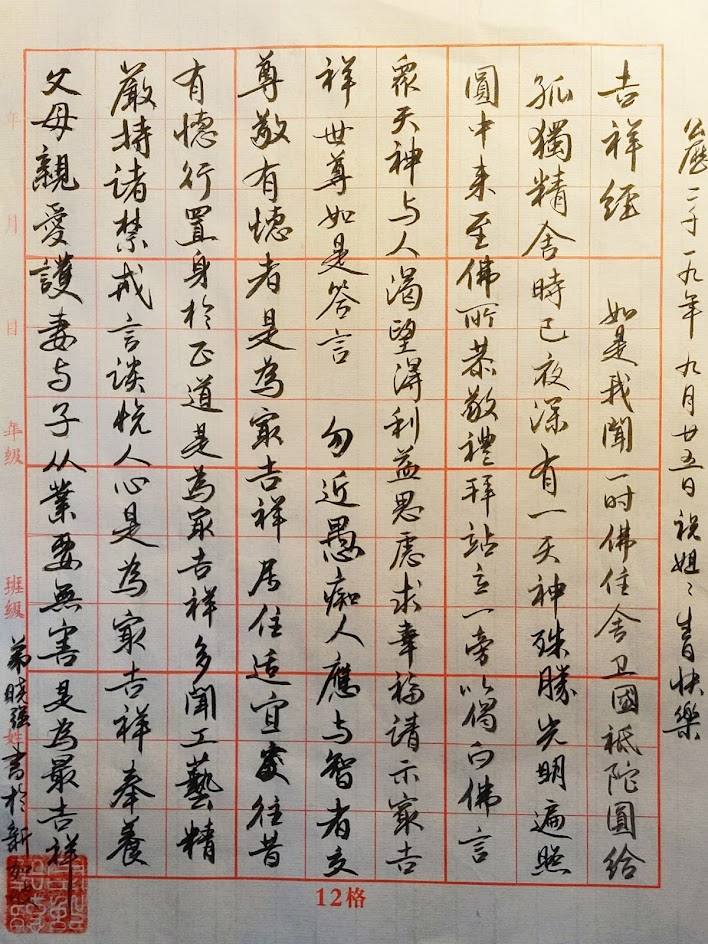 公歷二千一九年九月廿五日祝姐〻生日快樂
吉祥經 如是我聞一时佛住舍卫國祗陀圓給
孤獨精舍時已夜深有一天神殊勝光明遍照
圓中来至佛所恭敬禮拜站立一旁以偈白佛言
眾天神与人渴望得利益思慮求幸福請示最吉
祥世尊如是答言 勿近愚痴人應与智者交
尊敬有德者是為最吉祥居住适宜處往昔
有德行置身於正道是為最吉祥多聞工藝精
嚴持诸禁戒言談悦人心是為最吉祥奉養
父母親愛護妻与子从業要無害是為最吉祥
弟晓强書於新加坡
年 月 日 年级 班级 姓
12格